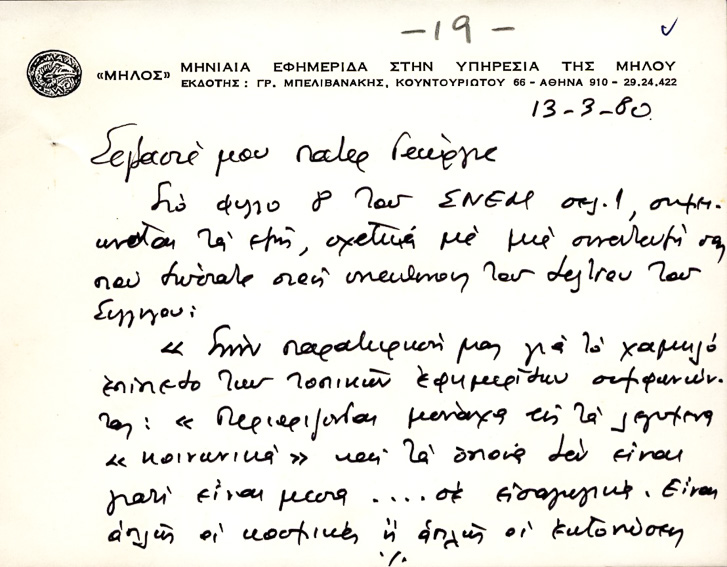 -19-
«ΜΗΛΟΣ» ΜΗΝΙΑΙΑ ΕΦΗΜΕΡΙΔΑ ΣΤΗΝ ΥΠΗΡΕΣΙΑ ΤΗΣ ΜΗΛΟΥ
ΕΚΔΟΤΗΣ: ΓΡ. ΜΠΕΛΙΒΑΝΑΚΗΣ, ΚΟΥΝΤΟΥΡΙΩΤΟΥ 66 - ΑΘΗΝΑ 910 - 29.24.422
13-3-80
Σεβαστέ μου πατερ Γεώργιε
Στό φυλο 8 του ΣΝΕΜ σελ. 1, σημει-
ωνεται τά εξής, σχετικά μέ μιά συνεντευξή σας
που δώσατε στους υπευθυνους του δελτιου του
Συλλογου:
« Στήν παρατηρησή μας γιά τό χαμηλό
ἐπίπεδο των τοπικών ἐφημερίδων συμφωνών-
τας: « Περιοριζονται μοναχα εις τά λεγομενα
« κοινωνικά » και τά οποια δεν είναι
γιατί είναι μεσα .... σέ εισαγωγικα. Είναι
ἁπλῶς οι κοσμικες ἤ ἁπλῶς οι ἐκτονωσεις
·/.